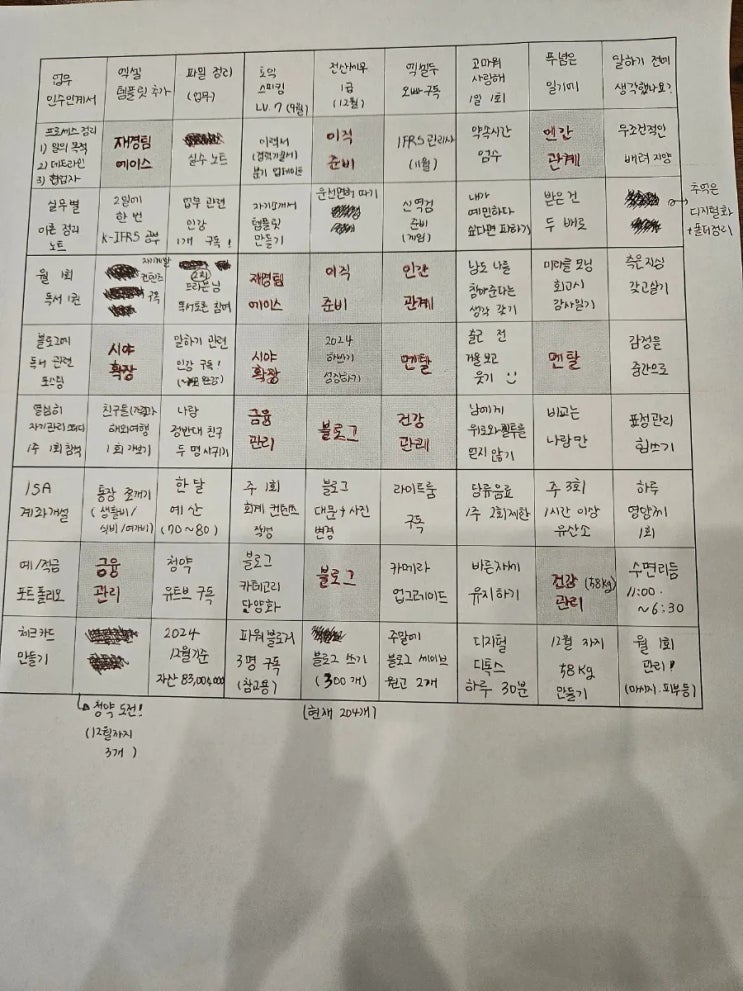 업무
인수인계서
엑셀
템플릿 추가
파일 정리
(업무)
토익
스피킹
LV. 7 (9월)
전산세무
1급
(12월)
엑셀두
오빠 구독
고마워
사랑해
1일 1회
푸념은
일기에
말하기 전에
생각했나요?
프로세스 정리
1) 일의 목적
2) 데드라인
3) 책임자
재경팀
에이스
실수 노트
이력서
(경력기술서)
분기 업데이트
이직
준비
IFRS 관리사
(11월)
약속시간
엄수
인간
관계
무조건적인
배려 지양
실무별
이론 정리
노트
2일에
한 번
K-IFRS 공부
업무 관련
인강
1개 구독!
자기소개서
템플릿
만들기
운전면허 따기
신역검
준비
(게임)
내가
예민하다
싶다면 피하기
받은 건
두 배로
추억은
디지털화
+ 폴더정리
월 1회
독서 1권
자기계발
컨텐츠
구독
트라분님
독서토론 참여
재경팀
에이스
이직
준비
인간
관계
남도 나를
참아준다는
생각 갖기
미라클 모닝
회고시
감사일기
측은지심
갖고살기
블로그에
독서 관련
포스팅
시야
확장
말하기 관련
인강 구독!
시야
확장
2024
하반기
성장하기
멘탈
출근 전
거울 보고
웃기
멘탈
감정을
중간으로
열심히
1주 1회 참석
친구들
해외여행
1회 가보기
나랑
정반대 친구
두 명 사귀기
금융
관리
블로그
건강
관리
남에게
위로와
얻지 않기
비교는
나랑만
표정관리
힘쓰기
ISA
계좌개설
통장 쪼개기
(생활비/
식비/여가비)
한 달
예산
(70~80)
주 1회
회계 컨텐츠
작성
블로그
대문 + 사진
변경
라이트룸
구독
당류음료
1주 2회제한
주 3회
1시간 이상
유산소
하루
영양제
1회
예/적금
포트폴리오
금융
관리
청약
유튜브 구독
블로그
카테고리
다양화
블로그
카메라
업그레이드
바른자세
유지하기
건강 (58kg)
관리
수면리듬
11:00 ·
~6:30
체크카드
만들기
2024
12월기준
자산 83,000,000
파워블로거
3명 구독
(참고용)
블로그 쓰기
(300개)
주말에
블로그 세이브
원고 2개
디지털
디톡스
하루 30분
12월 까지
58kg
만들기
월 1회
관리!
(마사지.피부등)
청약 도전!
(12월까지
3개)
(현재 204개)